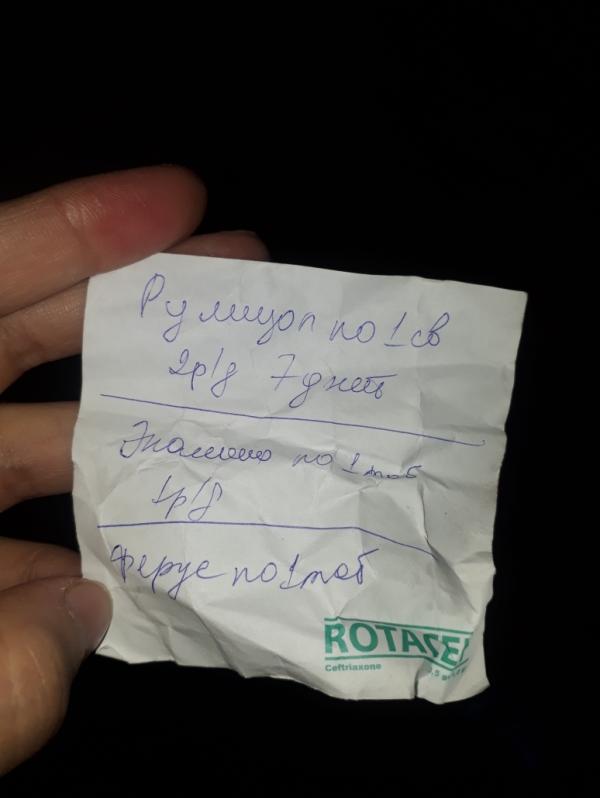 Румизол по 1 св
2р/д 7 дней
по 1 таб
1р/д
Ферус по 1 таб
ROTACEF
Ceftriaxone